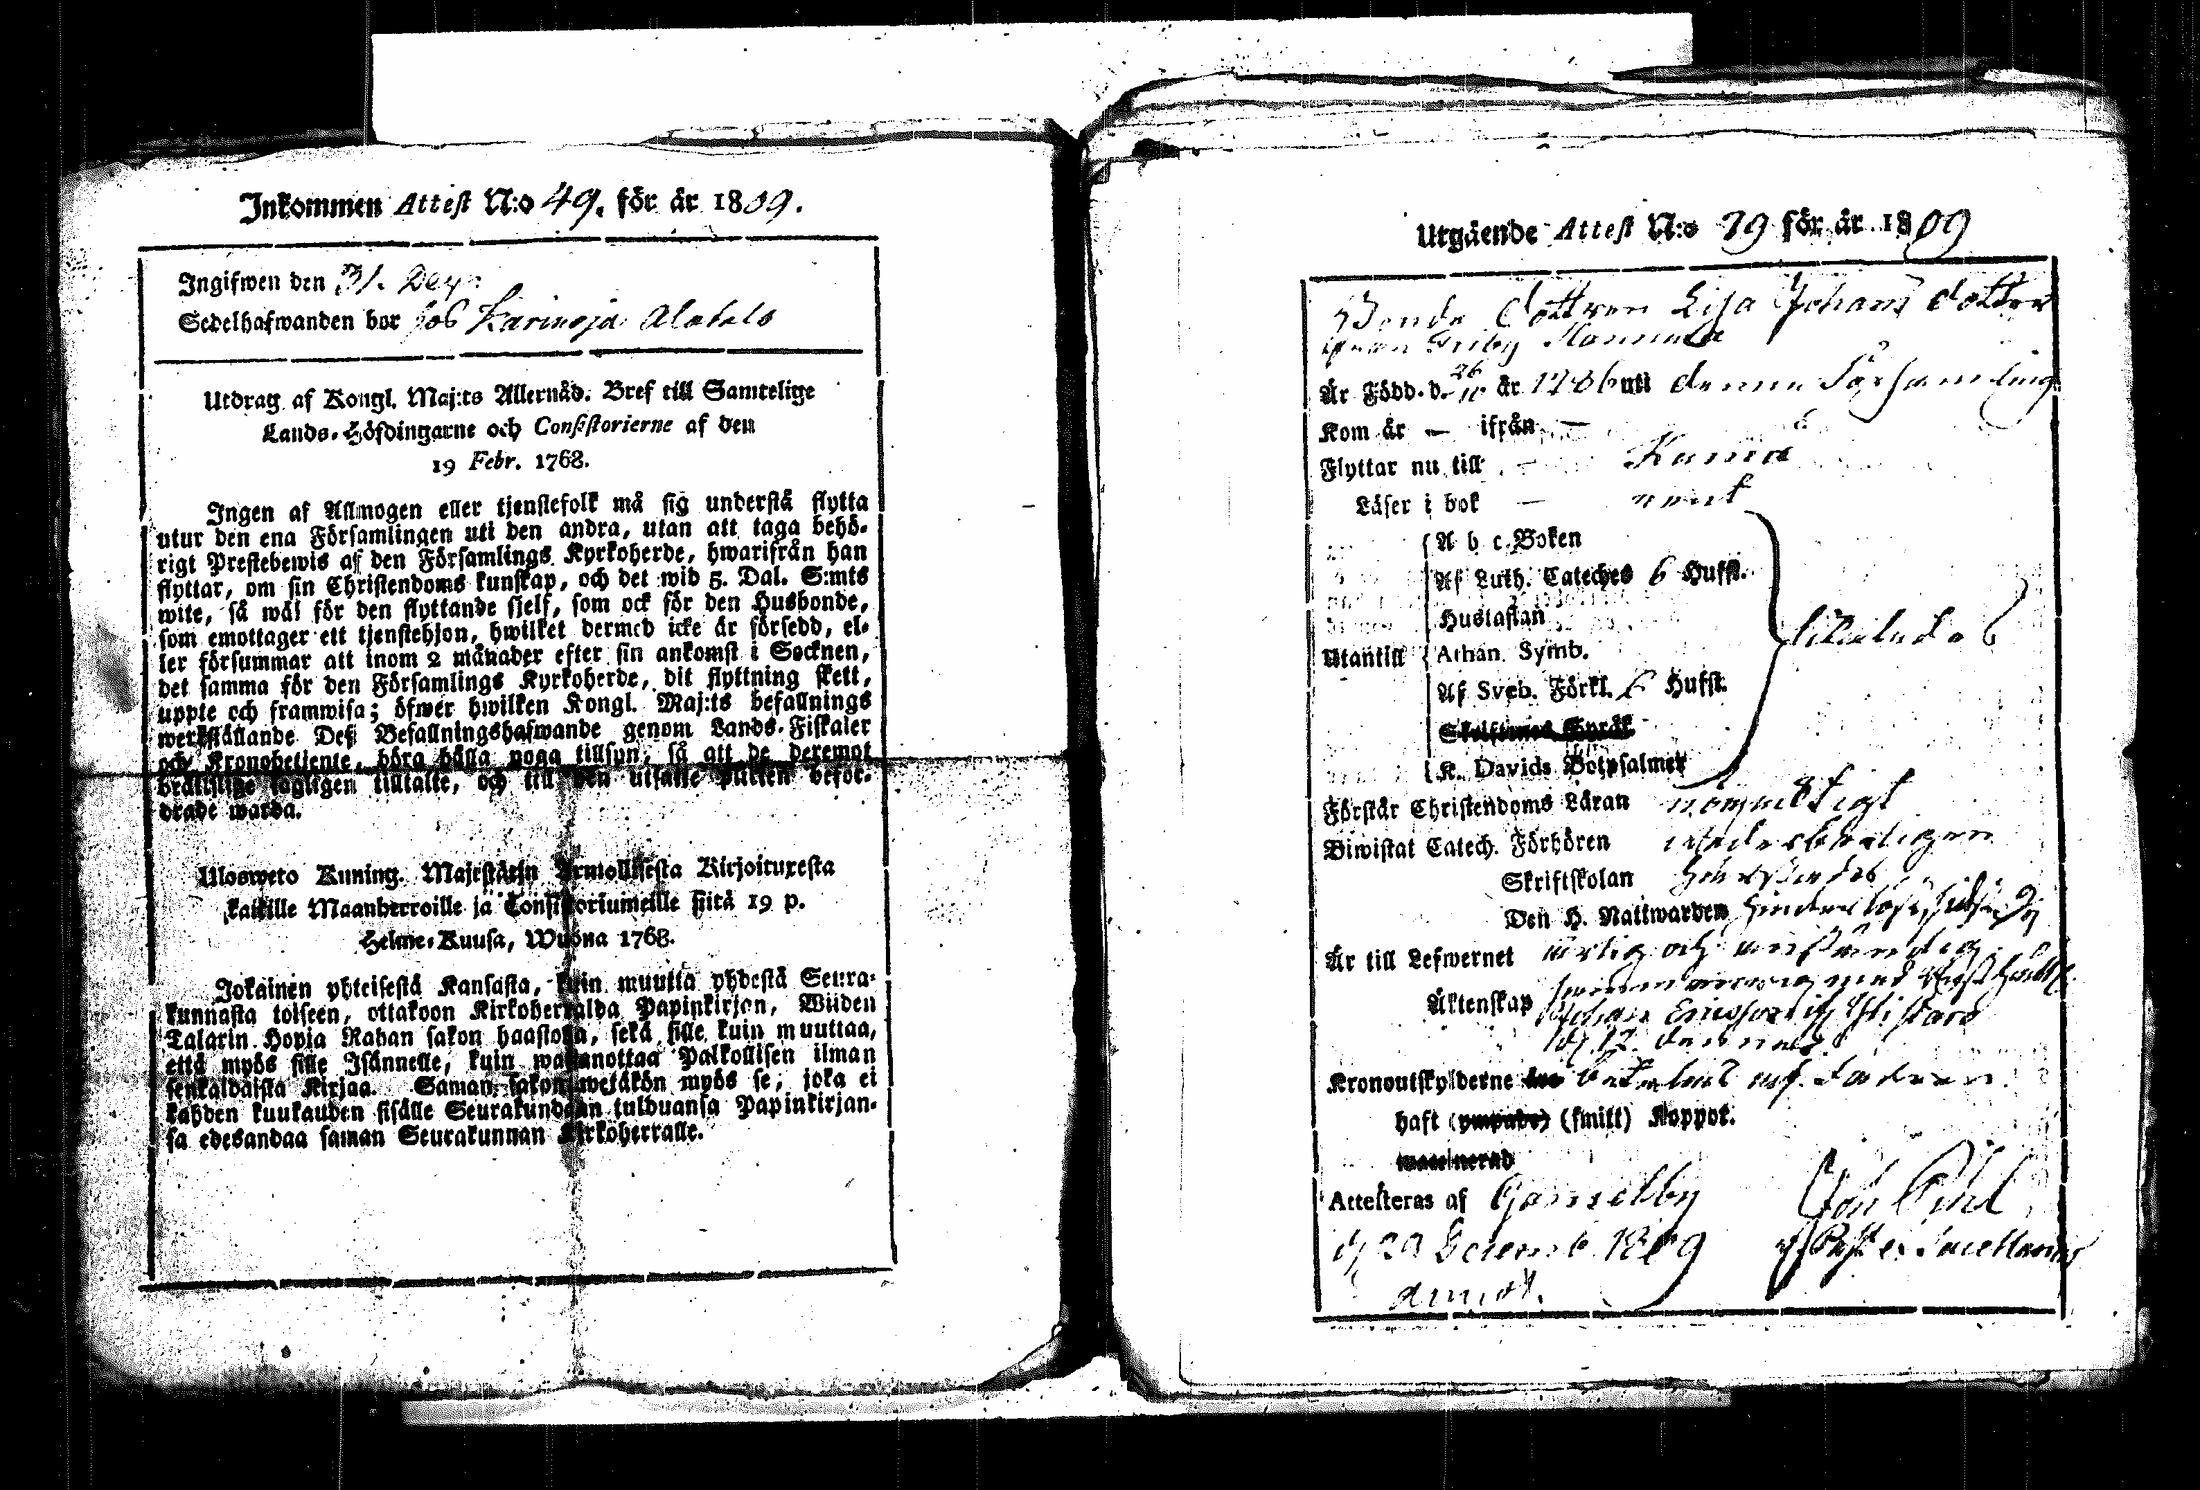 Inkommen Attest N:o 49. för år 1809.
Ingifwen den 31. Dey
Sedelhafwanden bor hos Karinoja Alatalo
Utdrag af Kongl. Maj:ts Allernåd. Bref till Samtelige
Lands-Höfdingarne och Consistorierne af den
19 Febr. 1768.
Ingen af Allmogen eller tjenstefolk må sig understå flytta
utur den ena Församlingen uti den andra, utan att taga behö-
rigt Prestebewis af den Församlings Kyrkoherde, hwarifrån han
flyttar, om sin Christendoms kunskap, och det wid 5. Dal. S:mts
wite, så wäl för den flyttande sjelf, som ock för den Husbonde,
som emottager ett tjenstehjon, hwilket dermed icke är försedd, el-
ler försummar att inom 2 månader efter sin ankomst i Socknen,
det samma för den Församlings Kyrkoherde, dit flyttning skett,
uppte och framwisa; öfwer hwilken Kongl. Maj:ts befallnings
werkställande Deß Befallningshafwande genom Lands-Fiskaler
och Kronobetjente, böra hålla noga tillsyn, så att de deremot
bråttslige lagligen tilltalte, och till den utsatte plikten befor-
drade warda.
Ulosweto Kuning. Majestätin Armollisesta Kirjoituxesta
kaikille Maanherroille ja Consistoriumeille siitä 19 p.
Helme-Kuusa, Wuonna 1768.
Jokainen yhteisestä Kansasta, kuin muutta yhdestä Seura-
kunnasta toiseen, ottakoon Kirkoherralda Papinkirjan, Wiiden
Talarin Hopia Rahan sakon haastolla, sekä sille kuin muuttaa,
että myös sille Isännelle, kuin wastanottaa Palkollisen ilman
senkaldaista Kirjaa. Saman sakon wetäkön myös se, joka ei
kahden kuukauden sisälle Seurakundaan tulduansa Papinkirjan-
sa edesandaa saman Seurakunnan Kirkoherralle.
Utgående Attest N:o 79 för år 1809
Bonde dottren Lisa Johans dotter
ifrån Friby Mannula
Är Född. d. 26/10 år 1786 uti denna Församling
Kom år — ifrån —
Flyttar nu till — Kumo
Läser i bok — rent
A b c Boken
Af Luth. Cateches 6 Hufst.
Hustaflan
Utantill Athan. Symb.
Af Sveb. Förkl. 6 Hufst.
Skriftenes Språk
K. Davids Botpsalmer
Förstår Christendoms Läran
Biwistat Catech. Förhören
Skriftskolan
Den H. Nattwarden
Är till Lefwernet ärlig och anständig
Äktenskap
Johan Ericsson
Kronoutskylderne betalas af fadren.
haft (ympade) (smitt) Koppor.
waccinerad
Attesteras af Gammelby
d 29 Decemb 1809